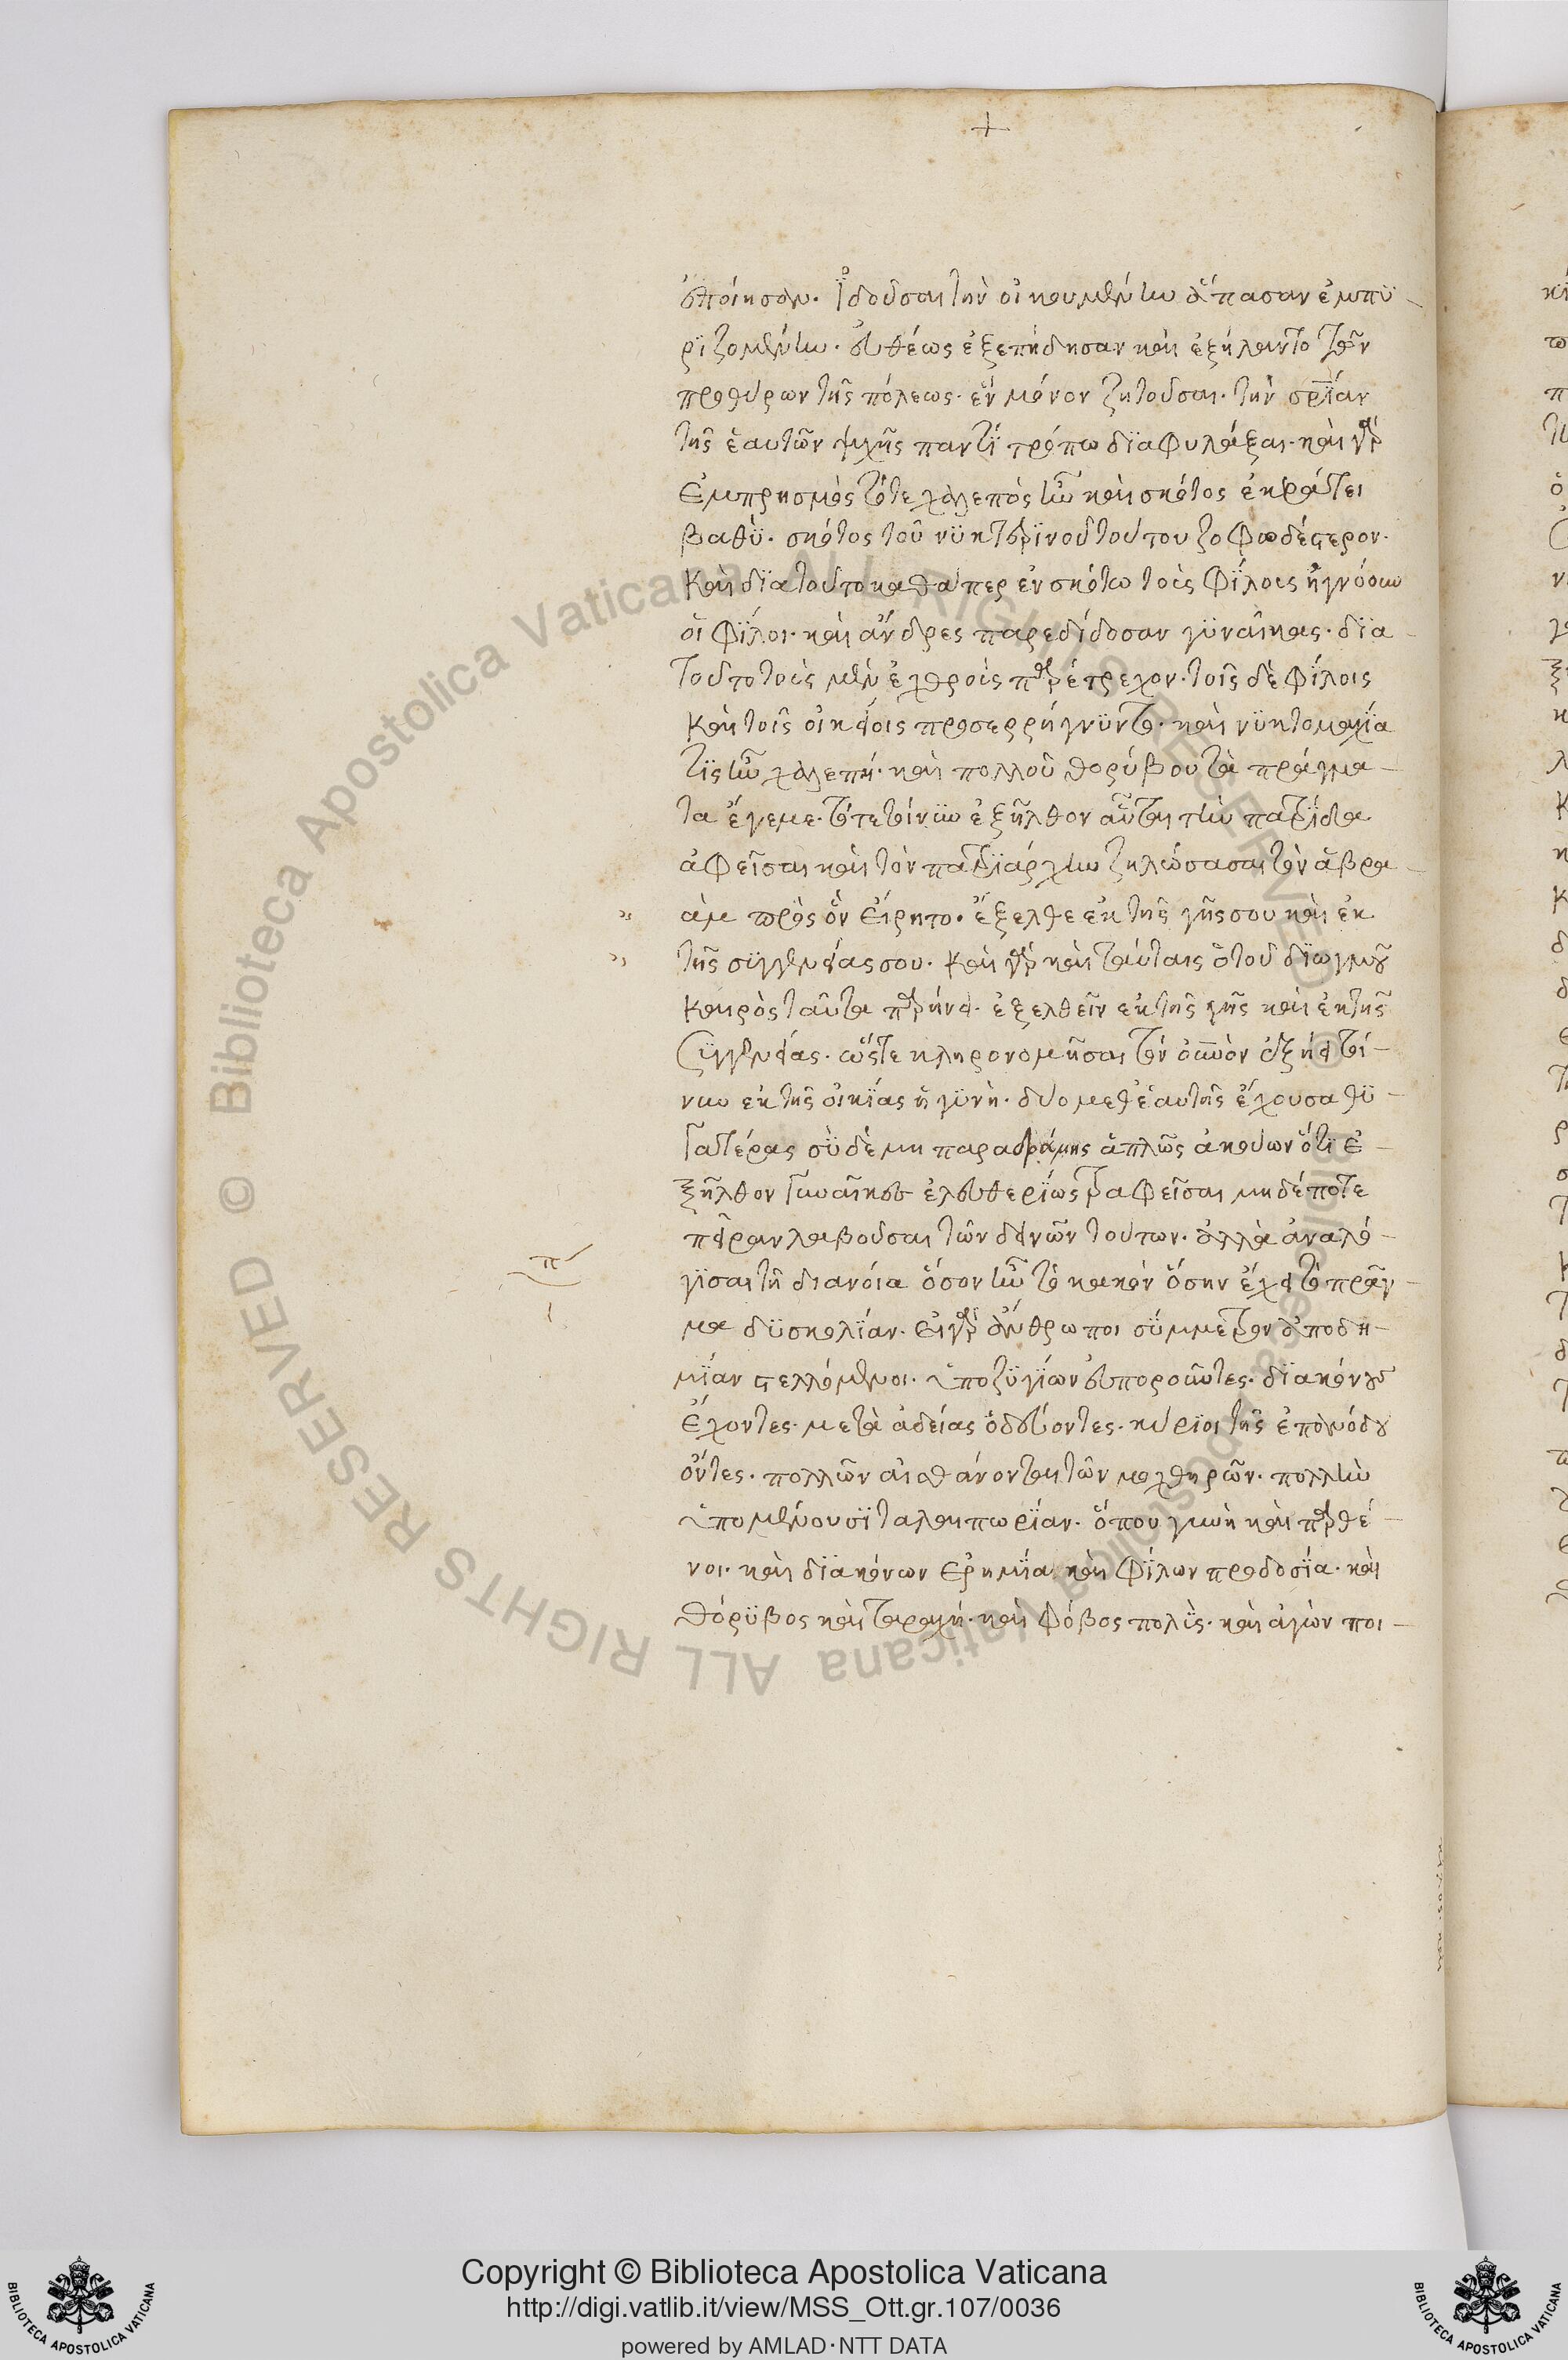 +
ἐποίησαν. ἰδοῦσαι τὴν οἰκουμένην ἅπασαν ἐμπϋ-
ρϊζομένην. εὐθέως ἐξεπήδησαν καὶ ἐξήλαντο τῶν
προθύρων τῆς πόλεως. ἓν μόνον ζητοῦσαι. τὴν σρΐαν
τῆς ἑαυτῶν ψυχῆς παντὶ τρόπω δϊαφυλάξαι. καὶ γὰρ
ἐμπρησμὸς τότε χαλεπὸς ἦν καὶ σκότος ἐκράτει
βαθὺ. σκότος τοῦ νϋκτερϊνοῦ τούτου ζοφωδέστερον.
καὶ δϊατοῦτο καθάπερ ἐν σκότω τοὺς φίλους ἠγνόουν
οἱ φίλοι. καὶ ἄνδρες παρεδίδοσαν γϋναῖκας. δϊα
τοῦτο τοὺς μὲν ἐχθροὺς παρέτρεχον. τοῖς δὲ φίλοις
καὶ τοῖς οἰκείοις προσερρήγνϋντο. καὶ νϋκτομαχία
τὶς ἦν χαλεπή. καὶ πολλοῦ θορύβου τὰ πράγμα-
τα ἔγεμε. τότε τοίνυν ἐξῆλθον αὗται τὴν πατρίδα
ἀφεῖσαι καὶ τὸν πατρϊάρχην ζηλώσασαι τὸν ἄβρα-
» ὰμ πρὸς ὃν εἴρητο. ἔξελθε ἐκ τῆς γῆς σου καὶ ἐκ
» τῆς συγγενείας σου. καὶ γὰρ καὶ ταύταις ὁ τοῦ διωγμοῦ
καιρὸς ταῦτα παρήνει. ἐξελθεῖν ἐκ τῆς γῆς καὶ ἐκ τῆς
συγγενείας. ὥστε κληρονομῆσαι τὸν οὐνὸν ἐξήει τοί-
νυν ἐκ τῆς οἰκίας ἡ γϋνὴ. δύο μεθ' ἑαυτῆς ἔχουσα θϋ-
γατέρας σὺ δὲ μη παραδράμης ἁπλῶς ἀκούων ὅτι ἐ-
ξῆλθον γυναῖκες ἐλευθερίως τραφεῖσαι μηδέποτε
πεῖραν λαβοῦσαι τῶν δεινῶν τούτων. ἀλλὰ ἀναλό-
γϊσαι τῆ διανοία ὅσον ἦν τὸ κακὸν ὅσην ἔχει τὸ πρᾶγ-
μα δϋσκολίαν. εἰ γὰρ ἄνθρωποι σύμμετρον ἀποδη-
μίαν στελλόμενοι. ὑποζϋγίων εὐποροῦντες. διακόνους
ἔχοντες. μετὰ ἀδείας ὁδεύοντες. κύριοι τῆς ἐπανόδου
ὄντες. πολλῶν αἰσθάνονται τῶν μοχθηρῶν. πολλὴν
ὑπομένουσϊ ταλαιπωρίαν. ὅπου γυνὴ καὶ παρθέ-
νοι. καὶ διακόνων ἐρημία. καὶ φίλων προδοσία. καὶ
θόρϋβος καὶ ταραχή. καὶ φόβος πολὺς. καὶ ἀγὼν ποι-
Copyright © Biblioteca Apostolica Vaticana
http://digi.vatlib.it/view/MSS_Ott.gr.107/0036
powered by AMLAD·NTT DATA
BIBLIOTECA APOSTOLICA VATICANA
BIBLIOTECA APOSTOLICA VATICANA
© Biblioteca Apostolica Vaticana ALL RIGHTS RESERVED
© Biblioteca Apostolica Vaticana ALL RIGHTS RESERVED